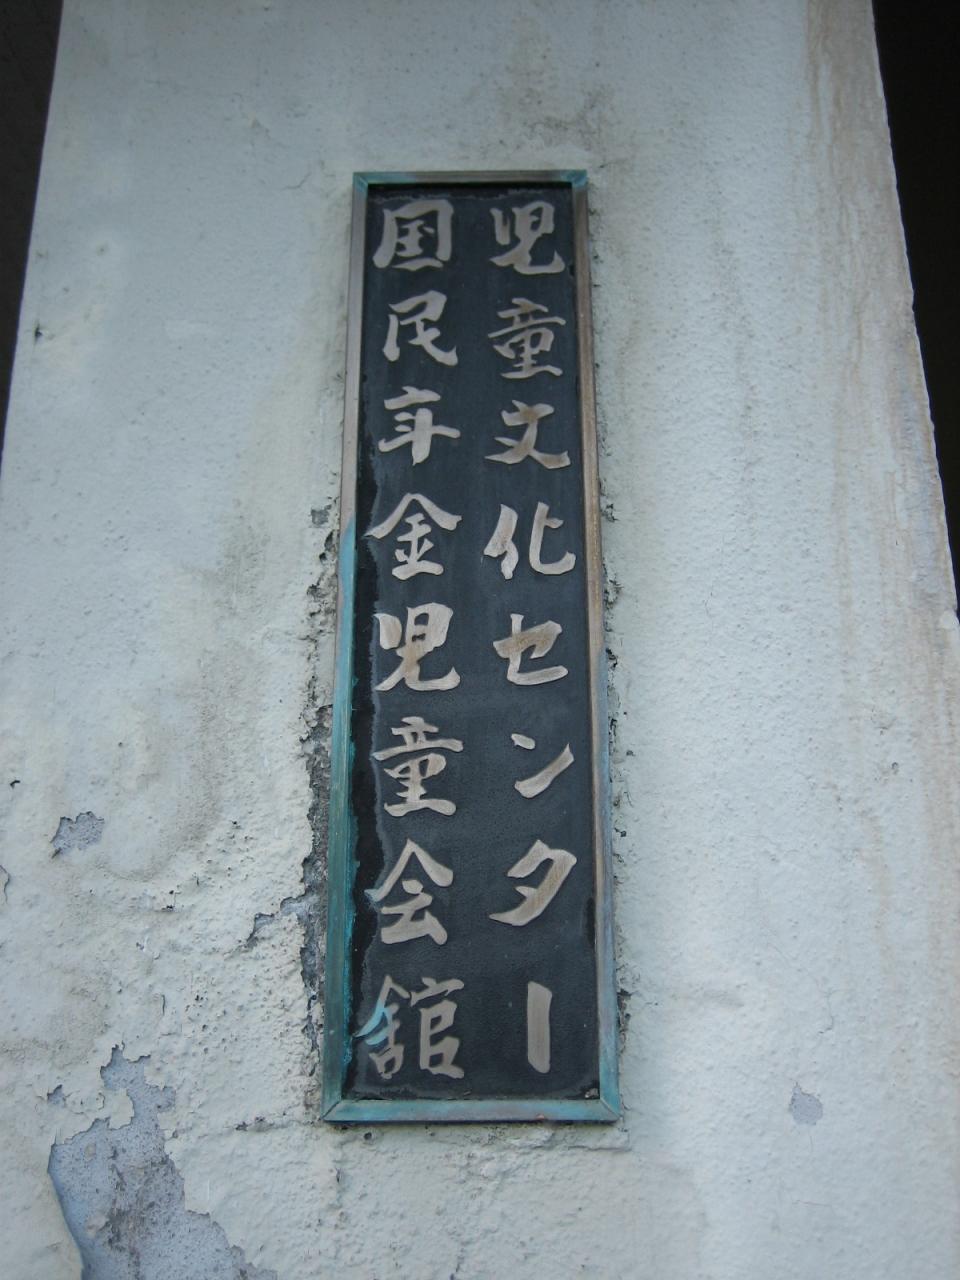 児童文化センター
国民年金児童会館